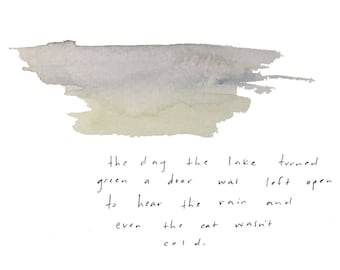 the day the lake turned
green a door was left open
to hear the rain and
even the cat wasn't
cold.